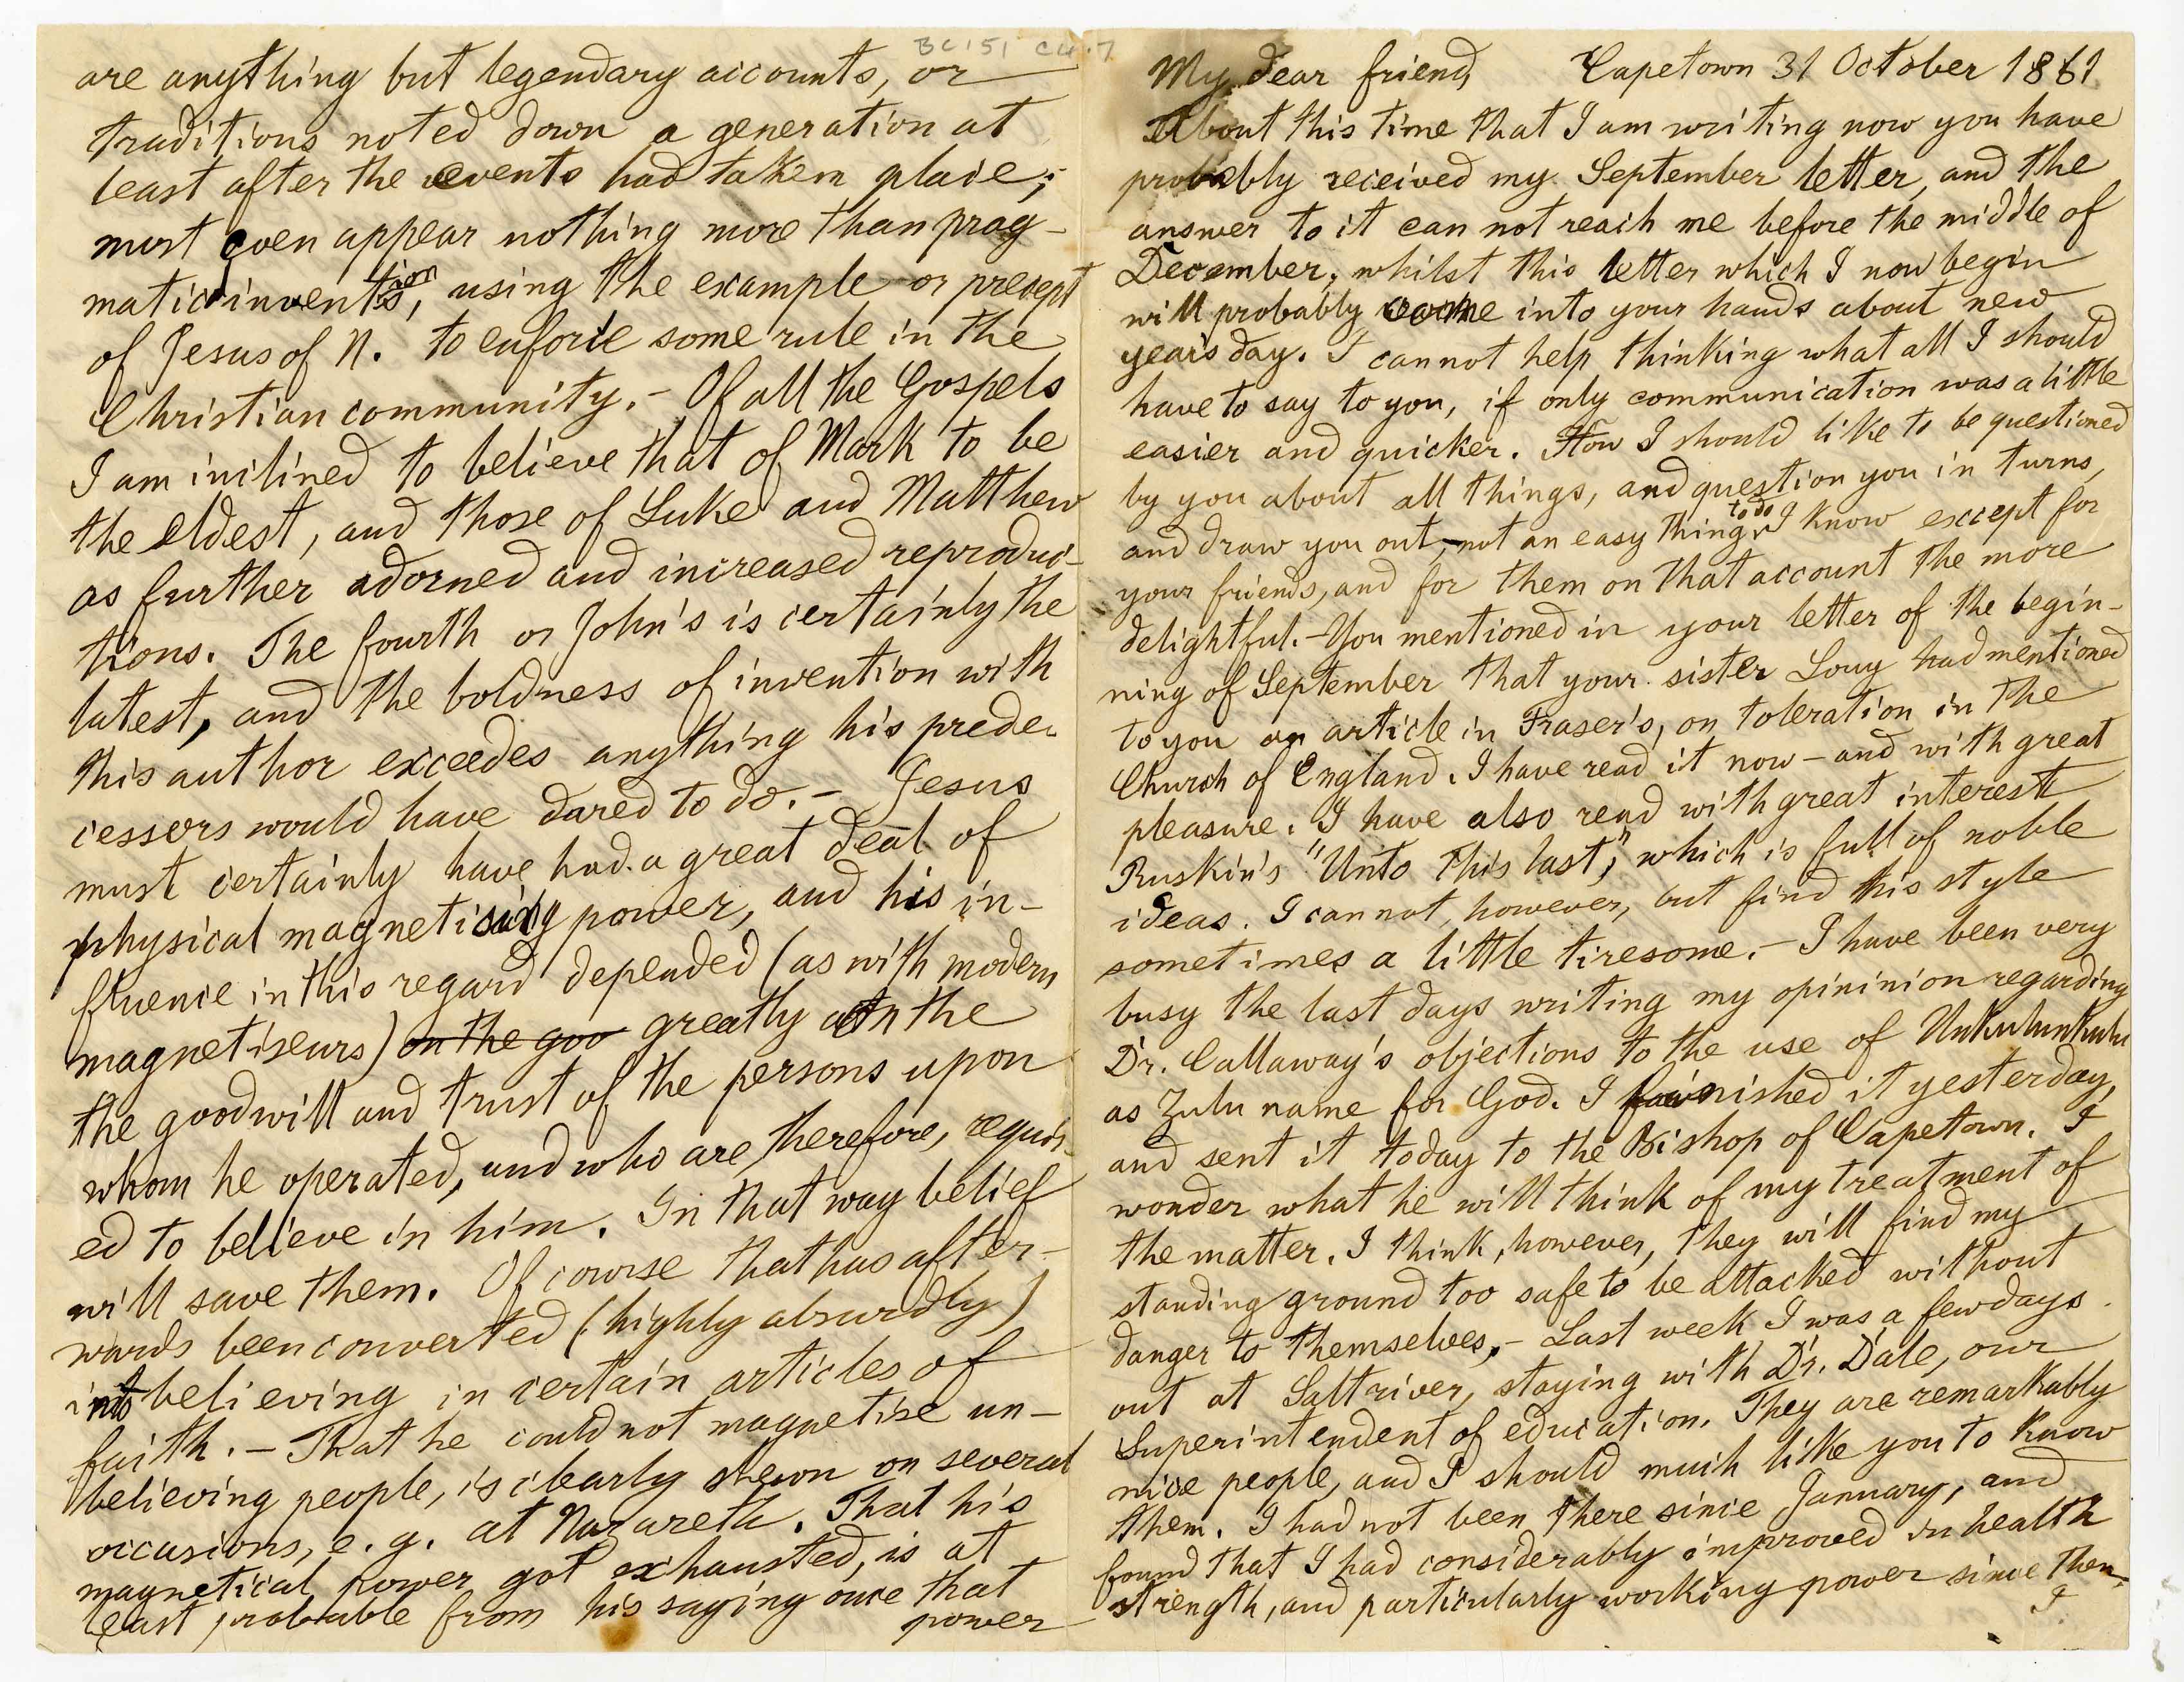 BC 151 C4.7
are anything but legendary accounts, or
traditions noted down a generation at
least after the events had taken place;
most even appear nothing more than prag-
matic invention, using the example or precept
of Jesus of N. to enforce some rule in the
Christian community. – Of all the Gospels
I am inclined to believe that of Mark to be
the eldest, and those of Luke and Matthew
as further adorned and increased reproduc-
tions. The fourth or John's is certainly the
latest, and the boldness of invention with
this author exceedes anything his prede-
cessors would have dared to do. – Jesus
must certainly have had a great deal of
physical magnetising power, and his in-
fluence in this regard depended (as with modern
magnetiseurs) on the goo greatly on the
the goodwill and trust of the persons upon
whom he operated, and who are, therefore, requir-
ed to believe in him. In that way belief
will save them. Of course that has after-
wards been converted (highly absurdly)
into believing in certain articles of
faith. – That he could not magnetise un-
believing people, is clearly shewn on several
occasions, e. g. at Nazareth. That his
magnetical power got exhausted, is at
least probable from his saying once that
power
My dear friend, Capetown 31 October 1861
About this time that I am writing now you have
probably received my September letter, and the
answer to it can not reach me before the middle of
December; whilst this letter which I now begin
will probably come into your hands about new
year's day. I cannot help thinking what all I should
have to say to you, if only communication was a little
easier and quicker. How I should like to be questioned
by you about all things, and question you in turns,
and draw you out, – not an easy thing to do I know except for
your friends, and for them on that account the more
delightful. – You mentioned in your letter of the begin-
ning of September that your sister Louy had mentioned
to you an article in Fraser's, on toleration in the
Church of England. I have read it now – and with great
pleasure. I have also read with great interest
Ruskin's "Unto this last," which is full of noble
ideas. I cannot, however, but find this style
sometimes a little tiresome. – I have been very
busy the last days writing my opininion regarding
Dr. Callaway's objections to the use of Unkulunkulu
as Zulu name for God. I finished it yesterday,
and sent it today to the Bishop of Capetown. I
wonder what he will think of my treatment of
the matter. I think, however, they will find my
standing ground too safe to be attacked without
danger to themselves. – Last week I was a few days
out at Saltriver, staying with Dr. Dale, our
Superintendent of education. They are remarkably
nice people, and I should much like you to know
them. I had not been there since January, and
found that I had considerably improved in health
strength, and particularly working power since then.
I